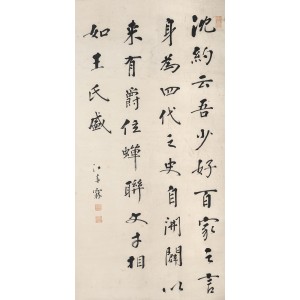 沈約云吾少好百家之言
身為四代之史自開闢以
来有爵位蟬聯文才相
如王氏盛
江春霖